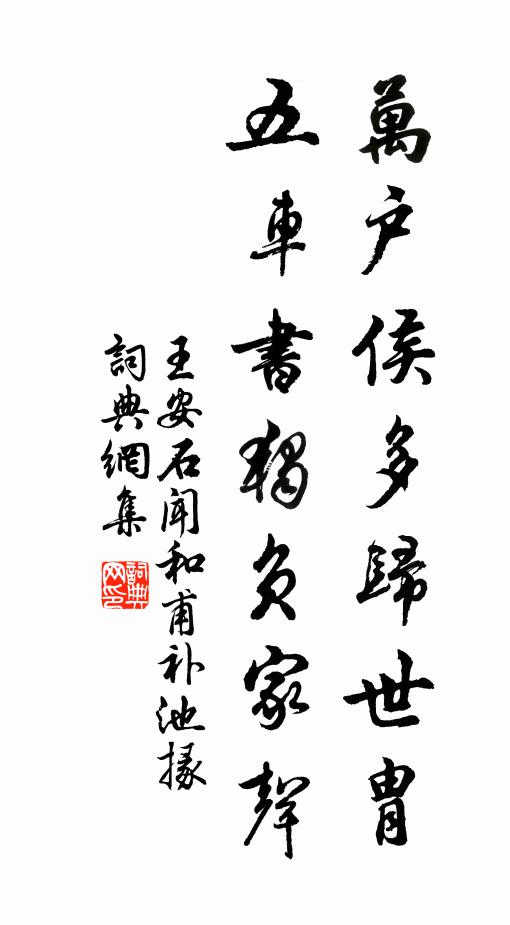 萬戶侯多歸世胄
五車書獨負家聲
王安石聞和甫补池掾
詞典網集
詞典网印